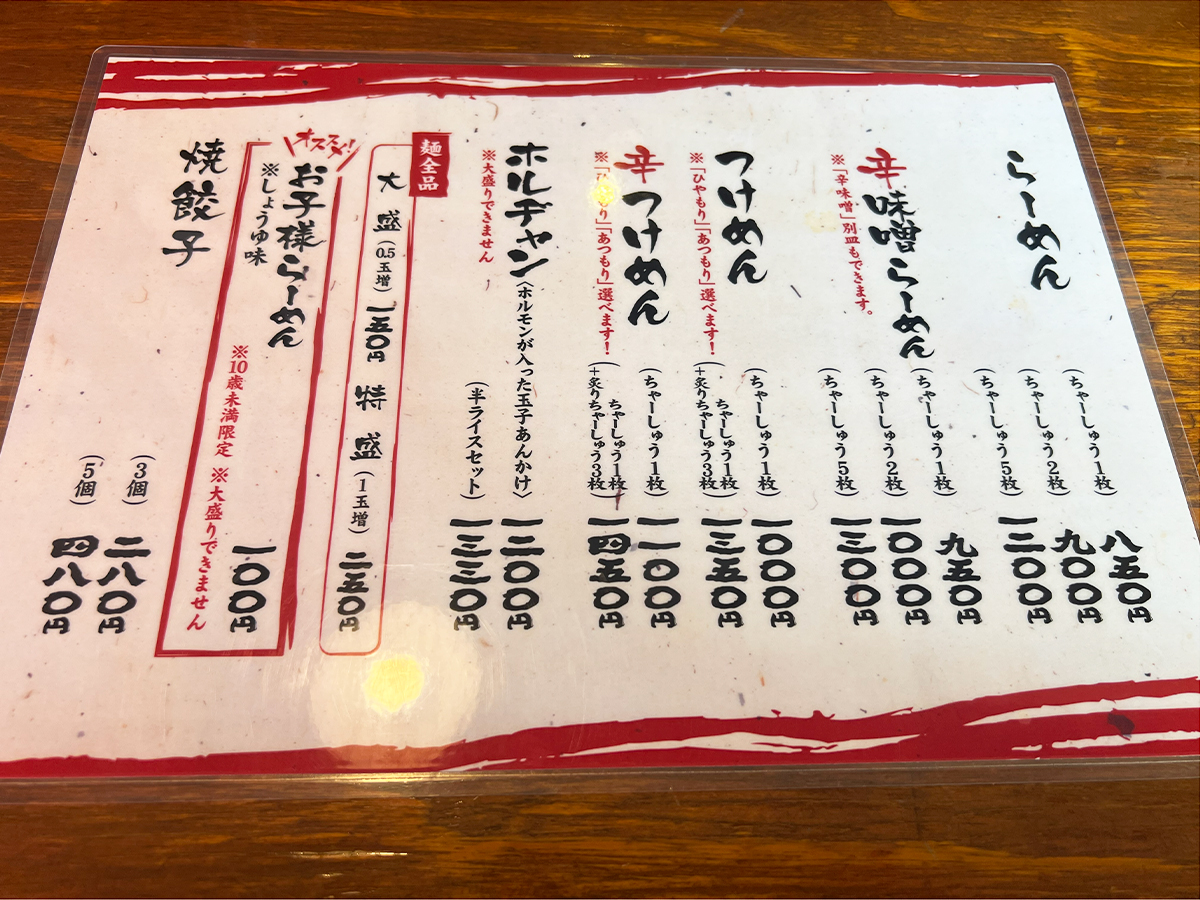 らーめん
(ちゃーしゅう1枚) 八五〇円
(ちゃーしゅう2枚) 九〇〇円
(ちゃーしゅう5枚) 一二〇〇円
辛味噌らーめん
※「辛味噌」別皿もできます。
(ちゃーしゅう1枚) 九五〇円
(ちゃーしゅう2枚) 一〇〇〇円
(ちゃーしゅう5枚) 一三〇〇円
つけめん
※「ひやもり」「あつもり」選べます!
(ちゃーしゅう1枚) 一〇〇〇円
(ちゃーしゅう1枚
+炙りちゃーしゅう3枚) 一三五〇円
辛つけめん
※「ひやもり」「あつもり」選べます!
(ちゃーしゅう1枚) 一一〇〇円
(ちゃーしゅう1枚
+炙りちゃーしゅう3枚) 一四五〇円
ホルヂャン〈ホルモンが入った玉子あんかけ〉 一二〇〇円
※大盛りできません
(半ライスセット) 一三三〇円
麺全品
大盛(0.5玉増) 一五〇円 特盛(1玉増) 二五〇円
オススメ!
お子様らーめん
※しょうゆ味
一〇〇円
※10歳未満限定 ※大盛りできません
焼餃子
(3個) 二八〇円
(5個) 四八〇円